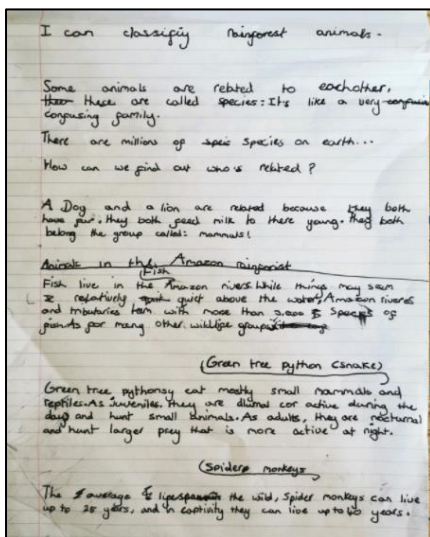 I can classifiy rainforest animals.
Some animals are related to eachother,
these are called species: It's like a very
confusing family.
There are millions of species on earth...
How can we find out who is related?
A Dog and a lion are related because they both
have fur. they both feed milk to there young. they both
belong the group called: mammals!
Animals in the Amazon rainforist
Fish
Fish live in the Amazon rivers. While things may seem
relatively quiet above the water, Amazon rivers
and tributaries tem with more than 2.000 Species of
fish. As for many other wildlife groups
(Green tree python (snake)
Green tree pythonsy eat mostly small mammals and
reptiles. As juveniles, they are diurnal cor active during the
day and hunt small animals. As adults, they are nocturnal
and hunt larger prey that is more active at night.
(Spider monkeys
The average in the wild, Spider monkeys can live
up to 25 years, and in captivity they can live up to 40 years.